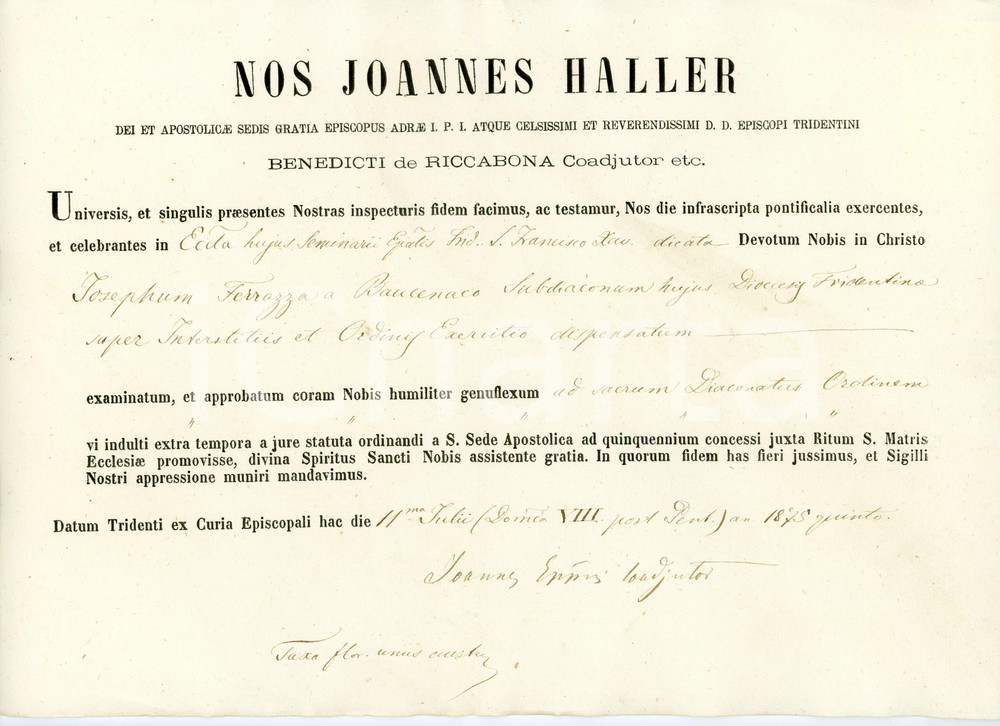 NOS JOANNES HALLER
DEI ET APOSTOLICÆ SEDIS GRATIA EPISCOPUS ADRÆ I. P. I. ATQUE CELSISSIMI ET REVERENDISSIMI D. D. EPISCOPI TRIDENTINI
BENEDICTI de RICCABONA Coadjutor etc.
Universis, et singulis præsentes Nostras inspecturis fidem facimus, ac testamur, Nos die infrascripta pontificalia exercentes,
et celebrantes in Eccla hujus Seminarii Epalis Trid. S. Francisco Xav. dicata Devotum Nobis in Christo
Josephum Ferrazza a Baucenaco Subdiaconum hujus Dioecesis Tridentinae
super Interstitiis et Ordinis Exercitio dispensatum
examinatum, et approbatum coram Nobis humiliter genuflexum ad sacrum Diaconatus Ordinem
vi indulti extra tempora a jure statuta ordinandi a S. Sede Apostolica ad quinquennium concessi juxta Ritum S. Matris
Ecclesiæ promovisse, divina Spiritus Sancti Nobis assistente gratia. In quorum fidem has fieri jussimus, et Sigilli
Nostri appressione muniri mandavimus.
Datum Tridenti ex Curia Episcopali hac die 11ma Julii (Domca VIII. post Pent.) an. 1875 quinto.
Joannes Eppus Coadjutor
Taxa flor. unius austr.